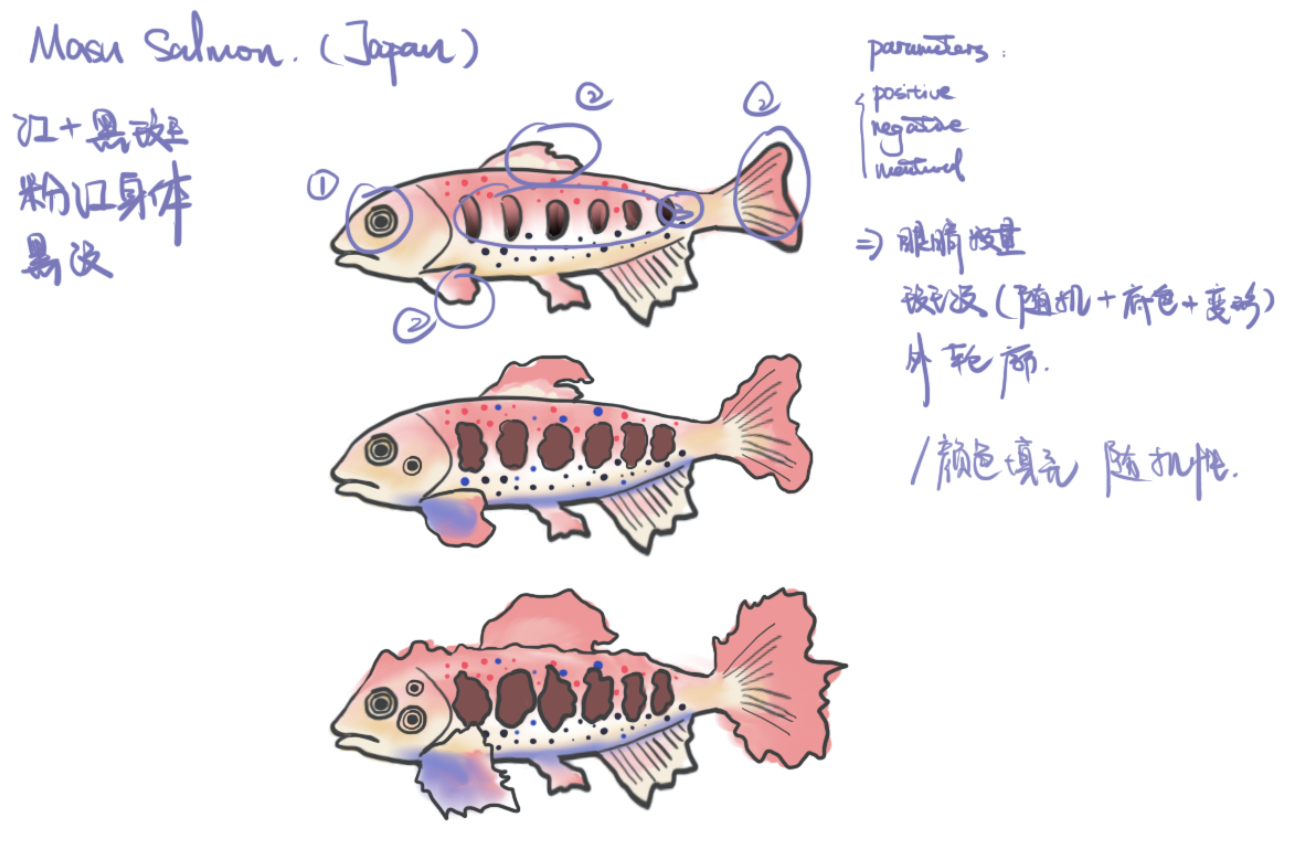 Masu Salmon. (Japan)
红+黑斑
粉红身体
黑波
①
②
②
②
parameters:
positive
negative
neutral
=> 眼睛数量
斑波(随机+底色+变形)
外轮廓.
/颜色填充 随机性.